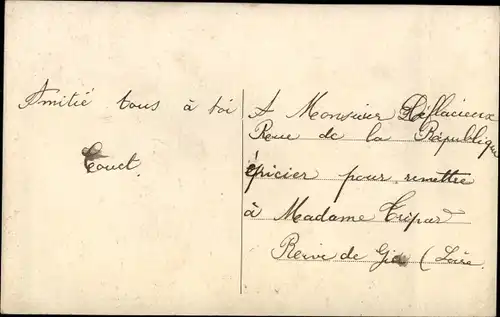 Amitié tous à toi
A Monsieur Déflacieux
Rue de la République
épicier pour remettre
à Madame Tripar
Rive de Gier (Loire